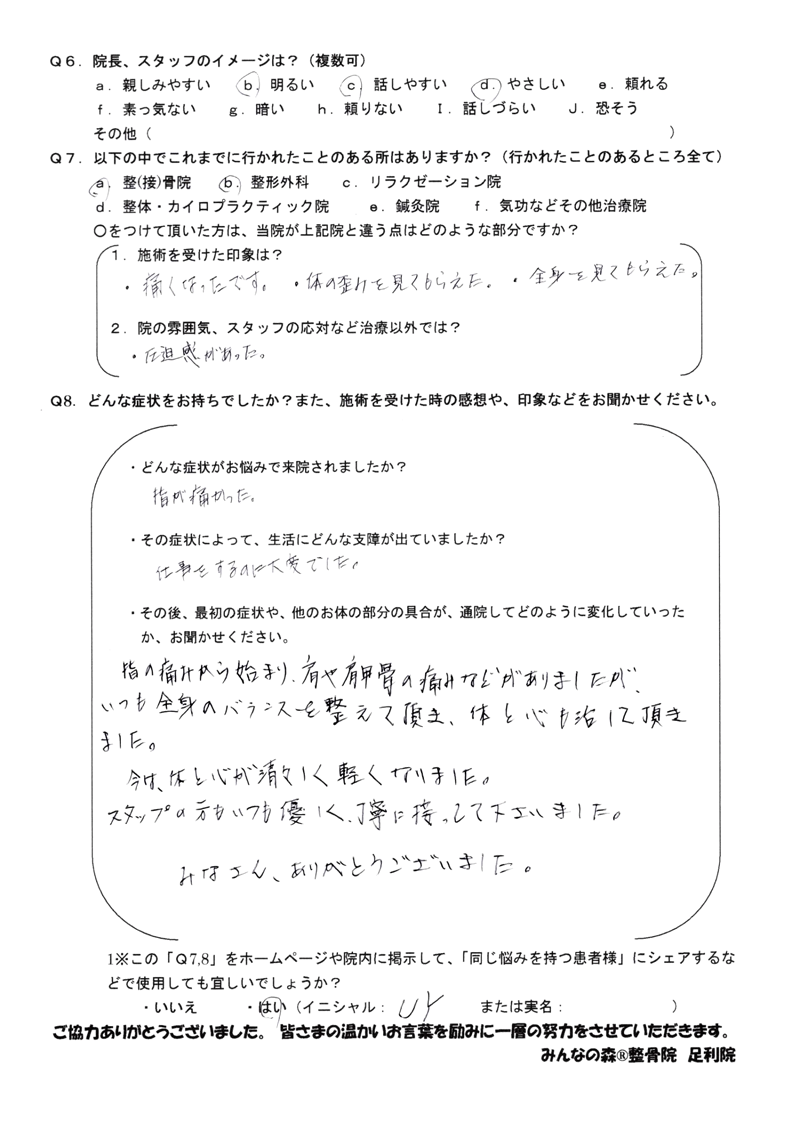 Q6．院長、スタッフのイメージは？（複数可）
a．親しみやすい　b．明るい　c．話しやすい　d．やさしい　e．頼れる
f．素っ気ない　g．暗い　h．頼りない　I．話しづらい　J．恐そう
その他（　　　　　　）
Q7．以下の中でこれまでに行かれたことのある所はありますか？（行かれたことのあるところ全て）
a．整(接)骨院　b．整形外科　c．リラクゼーション院
d．整体・カイロプラクティック院　e．鍼灸院　f．気功などその他治療院
〇をつけて頂いた方は、当院が上記院と違う点はどのような部分ですか？
1．施術を受けた印象は？
・痛くなったです。　・体の歪みを見てもらえた。　・全身を見てもらえた。
2．院の雰囲気、スタッフの応対など治療以外では？
・圧迫感があった。
Q8．どんな症状をお持ちでしたか？また、施術を受けた時の感想や、印象などをお聞かせください。
・どんな症状がお悩みで来院されましたか？
指が痛かった。
・その症状によって、生活にどんな支障が出ていましたか？
仕事をするのに大変でした。
・その後、最初の症状や、他のお体の部分の具合が、通院してどのように変化していった
か、お聞かせください。
指の痛みから始まり、肩や肩甲骨の痛みなどがありましたが、
いつも全身のバランスを整えて頂き、体と心も治して頂き
ました。
今は、体と心が清々しく軽くなりました。
スタップの方もいつも優しく、丁寧に持っして下さいました。
みなさん、ありがとうございました。
1※この「Q7,8」をホームページや院内に掲示して、「同じ悩みを持つ患者様」にシェアするな
どで使用しても宜しいでしょうか？
・いいえ　・はい（イニシャル：UY　または実名：　　　　）
ご協力ありがとうございました。 皆さまの温かいお言葉を励みに一層の努力をさせていただきます。
みんなの森®整骨院　足利院